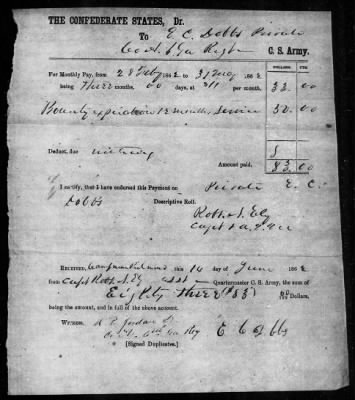 THE CONFEDERATE STATES, Dr.
To E. C. Dobbs Private
Co. 6 Ga Regt C. S. Army.
DOLLARS. CTS.
For Monthly Pay, from 28 Feby 1862 to 31 1862
being Three months, 00 days, at $11 per month, 33.00
Bounty 12 months service 50.00
Deduct, due nothing
Amount paid, $ 83.00
I certify, that I have endorsed this Payment on Private E. C.
Dobbs Descriptive Roll.
Robt. A. Ely
Capt & a.
RECEIVED, this 14 day of June 1862
from Capt Robt. A. Ely asst Quartermaster C. S. Army, the sum of
Eighty Three ($83) Dollars,
being the amount, and in full of the above account.
WITNESS. Jordan E C Dobbs
Co. 6th Ga Reg
[Signed Duplicates.]